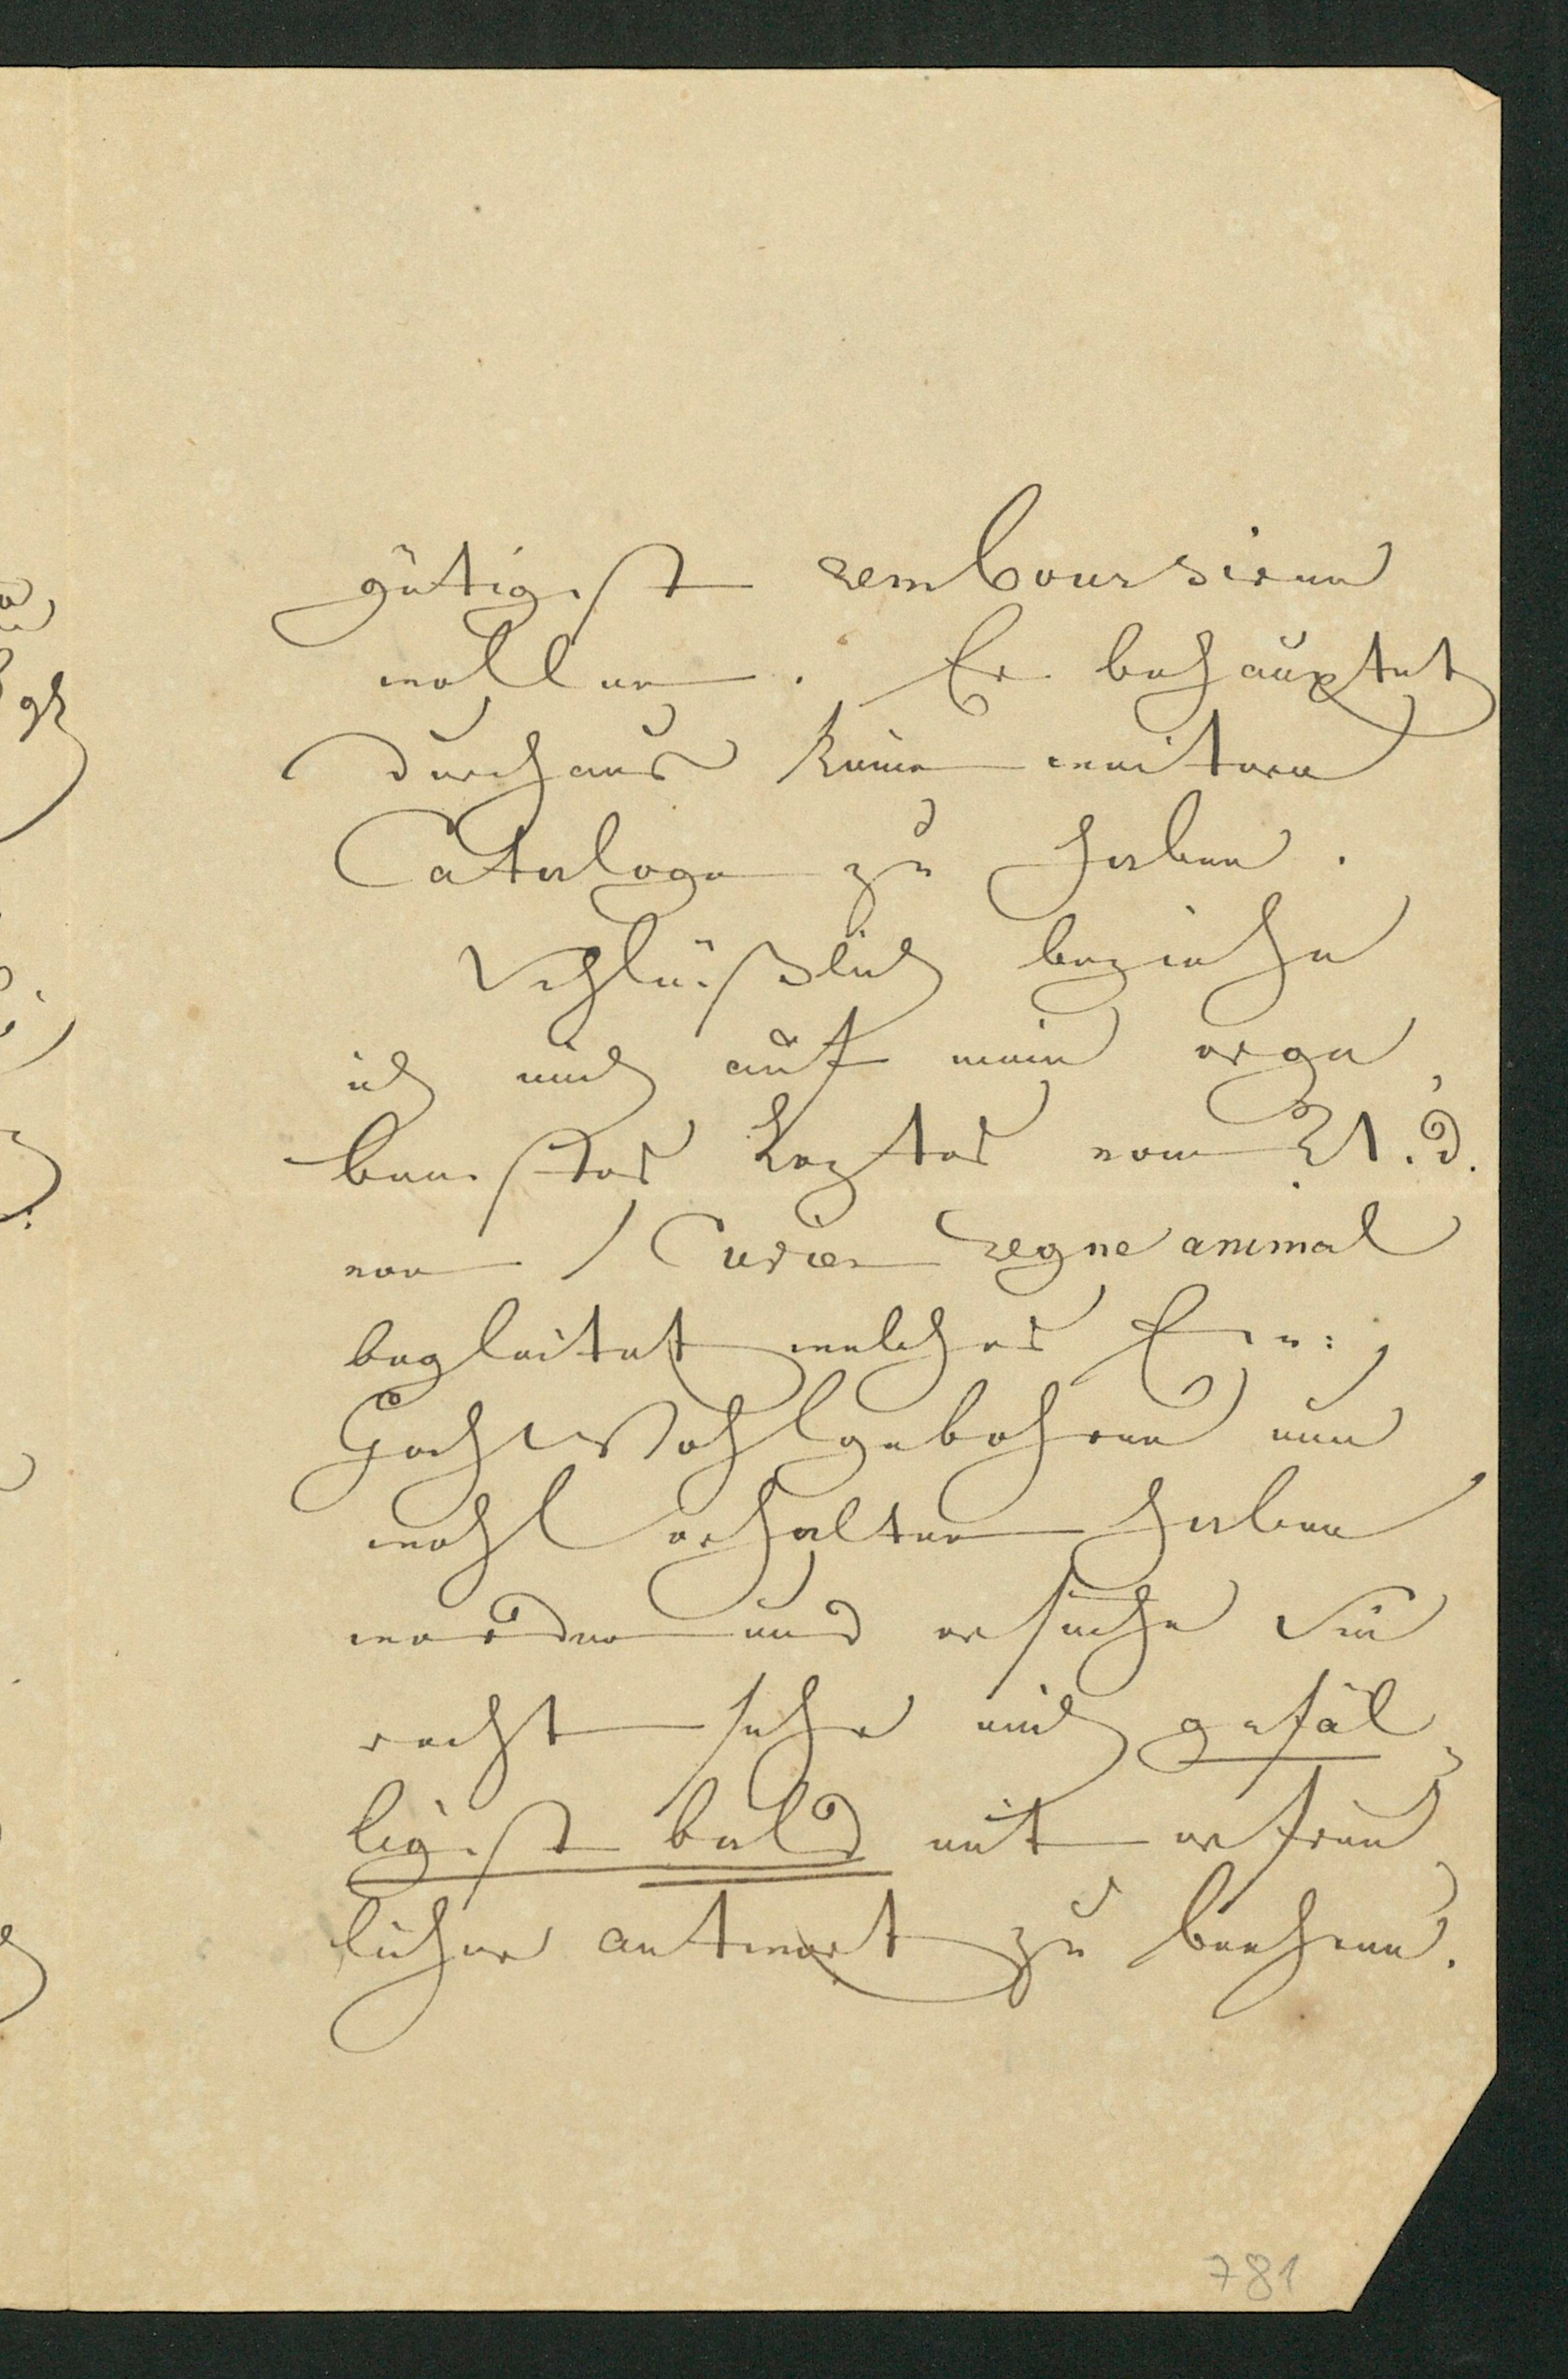 gütigst remboursiren
wollen. Er behauptet
durchaus keine weitern
Cataloge zu haben.
Schlüßlich beziehe
ich mich auf mein erge
benstes Leztes vom 21. d.
von Cuvier regne animal
begleitet welches Eu:
HochWohlgebohren nun
wohl erhalten haben
werden und ersuche Sie
recht sehr mich gefäl
ligst bald mit erfreu
licher antwort zu beehren.
781